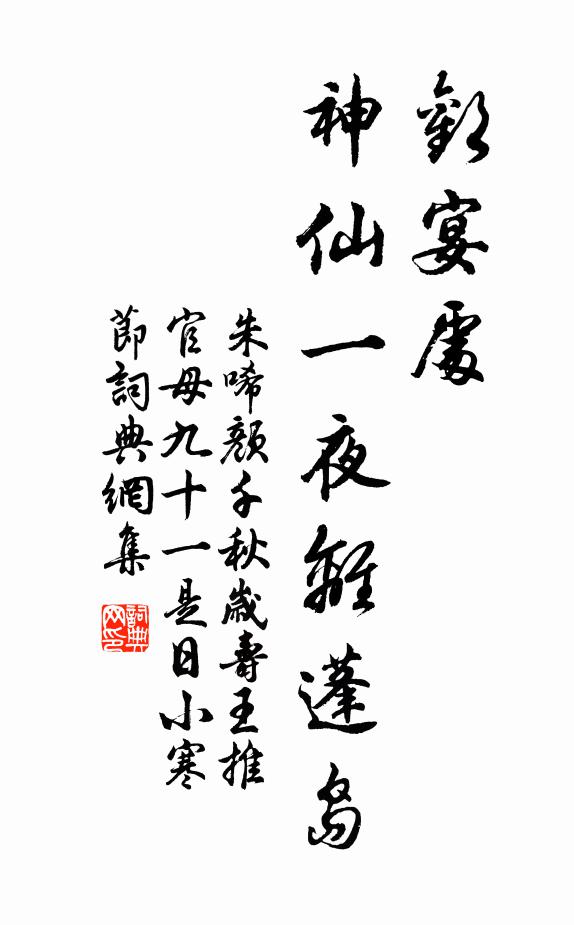 歡宴處
神仙一夜離蓬島
朱唏顏千秋歲壽王推
官母九十一是日小寒
節詞典網集
詞典
网印